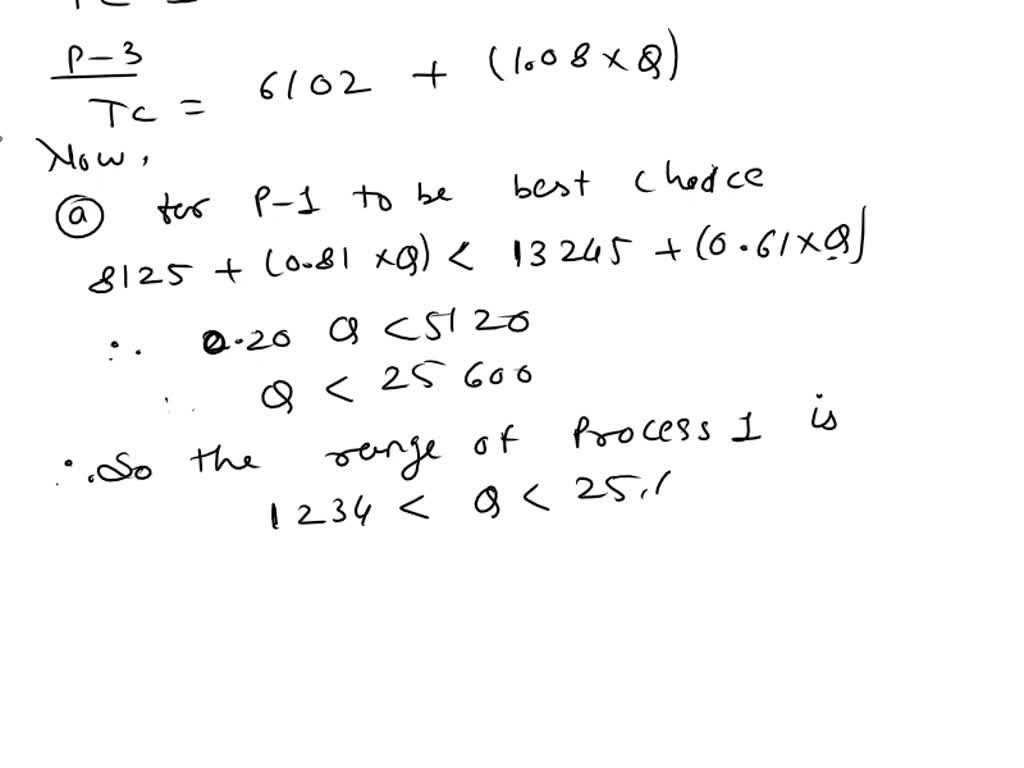 P-3
TC = 6102 + (1.08 × Q)
Now,
(a) for P-1 to be best choice
8125 + (0.81 × Q) < 13245 + (0.61 × Q)
∴ 0.20 Q < 5120
∴ Q < 25600
∴ So the range of Process 1 is
1234 < Q < 25,